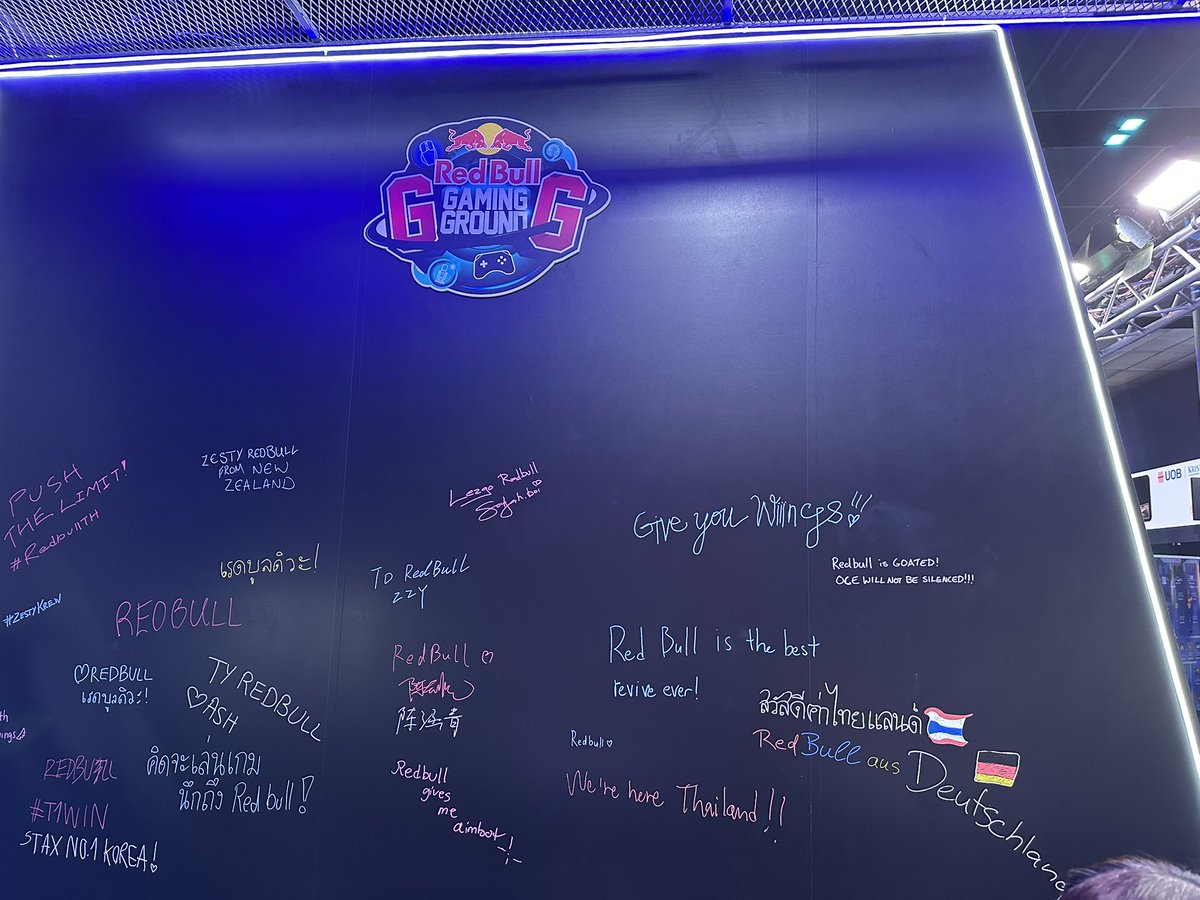 Red Bull
G GAMING G
GROUND
UOB
PUSH
THE LIMIT!
#RedbullTH
ZESTY REDBULL
FROM NEW
ZEALAND
Lezgo Redbull
Give you Wiiings!!!
Redbull is GOATED!
OCE WILL NOT BE SILENCED!!!
เรดบูลดิวะ!
TO RedBull
ZZY
#ZESTYKREW
REDBULL
Red Bull is the best
revive ever!
RedBull
♡REDBULL
เรดบูลดิวะ!
TY REDBULL
♡ASH
สวัสดีค่าไทยแลนด์
RedBull aus Deutschland
Redbull♡
REDBULL
#T1WIN
STAX NO.1 KOREA!
คิดจะเล่นเกม
นึกถึง Red bull!
Redbull
gives
me
aimbot
We're here Thailand!!